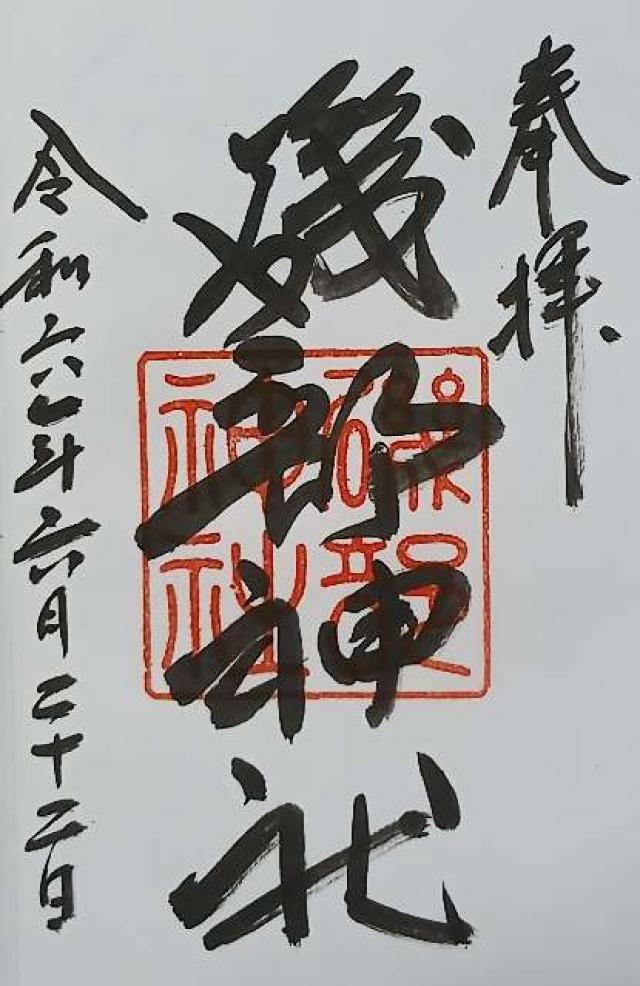 奉拝
磯部神社
令和六年六月二十二日